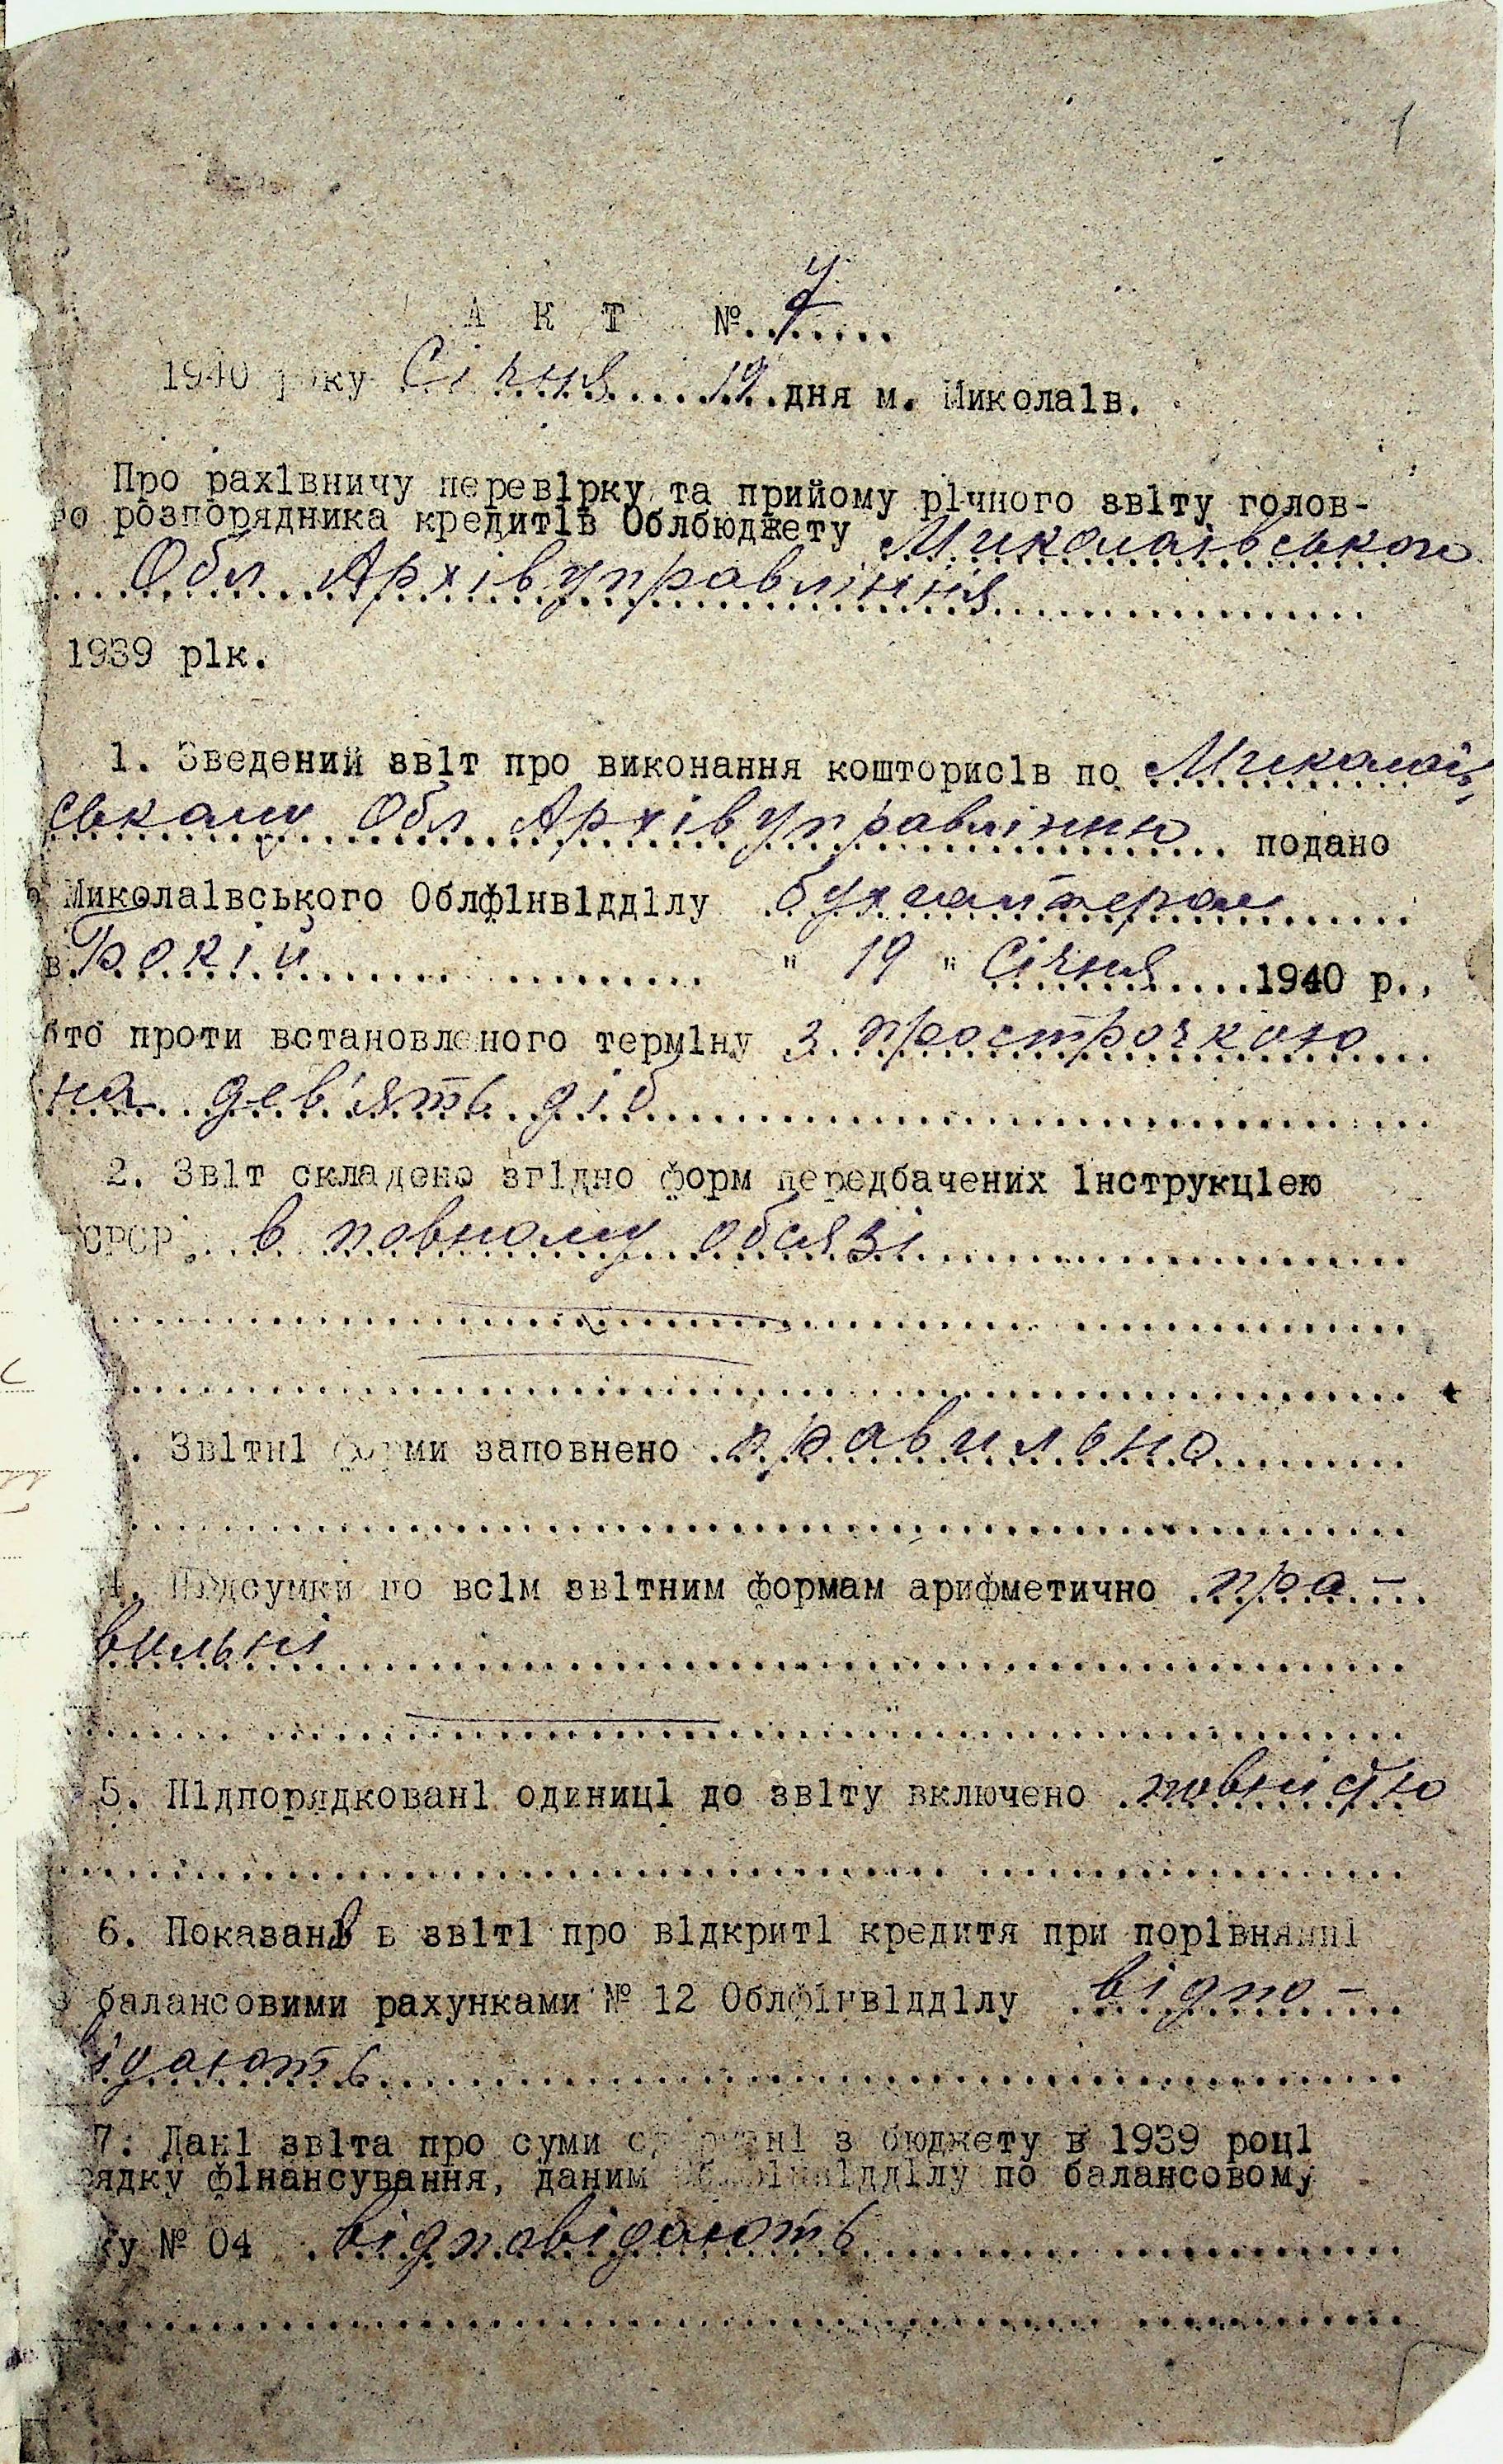 1
А К Т № 7
1940 року Січня 19 дня м. Миколаıв.
Про рахıвничу перевıрку та прийому рıчного звıту голов-
го розпорядника кредитıв Облбюджету Миколаївського
Обл Архівуправління
1939 рıк.
1. Зведений звıт про виконання кошторисıв по Миколаїв
ському Обл Архівуправлінню подано
Миколаıвського Облфıнвıддıлу бухгалтером
в
" 19 " Січня 1940 р.,
бто проти встановленого термıну з прострочкою
на дев'ять діб
2. Звıт складено згıдно форм передбачених ıнструкцıею
СРСР в повному обсязі
. Звıтнı форми заповнено правильно
4. Пıдсумки по всıм звıтним формам арифметично пра-
вильні
5. Пıдпорядкованı одиницı до звıту включено повністю
6. Показанı в звıтı про вıдкритı кредитя при порıвняннı
балансовими рахунками № 12 Облфıнвıддıлу відпо-
відають
7. Данı звıта про суми одержанı з бюджету в 1939 роцı
рядку фıнансування, даним Облфıнвıддıлу по балансовому
ку № 04 відповідають